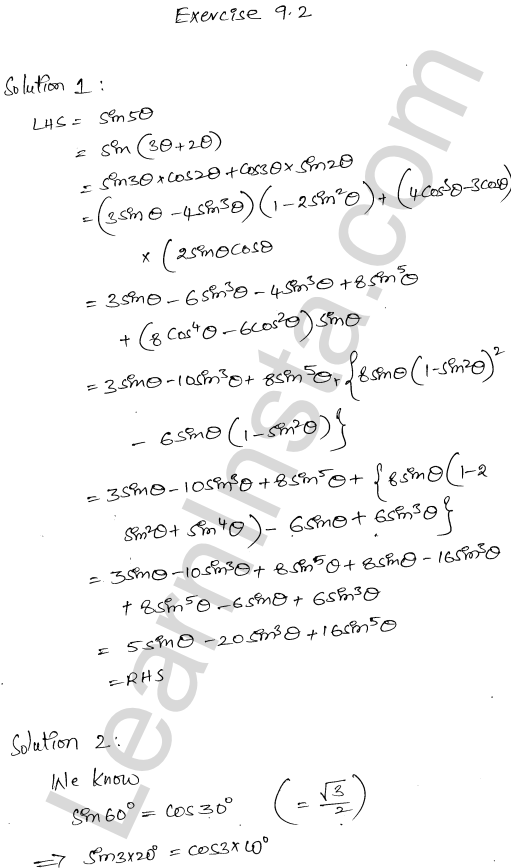 Exercise 9.2
Solution 1:
LHS = sin5θ
= sin(3θ+2θ)
= sin3θ×cos2θ+cos3θ×sin2θ
= (3sinθ-4sin³θ)(1-2sin²θ)+(4cos³θ-3cosθ)
×(2sinθcosθ
= 3sinθ-6sin³θ-4sin³θ+8sin⁵θ
+(8cos⁴θ-6cos²θ)sinθ
= 3sinθ-10sin³θ+8sin⁵θ+{8sinθ(1-sin²θ)²
- 6sinθ(1-sin²θ)}
= 3sinθ-10sin³θ+8sin⁵θ+{8sinθ(1-2
sin²θ+sin⁴θ)-6sinθ+6sin³θ}
= 3sinθ-10sin³θ+8sin⁵θ+8sinθ-16sin³θ
+8sin⁵θ-6sinθ+6sin³θ
= 5sinθ-20sin³θ+16sin⁵θ
= RHS
Solution 2:
We know
sin60° = cos30° (= √3/2)
⇒ sin3×20° = cos3×10°
LearnInsta.com